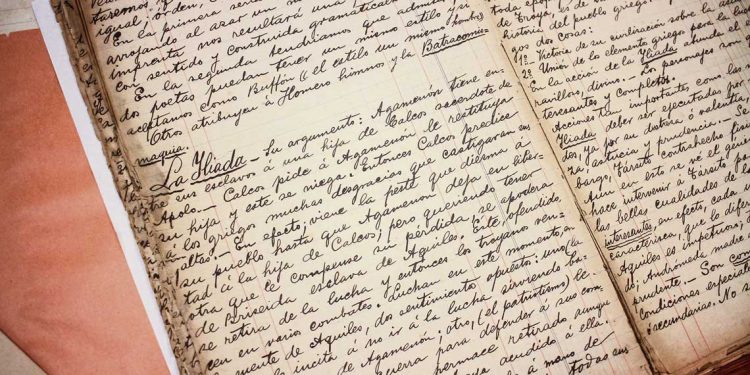 Haremos,
igual, orden,
En la primera serie
arrojando al azar un
imprenta nos resultará una
con sentido y construida gramatical
En la segunda tendríamos que admitir
dos poetas puedan tener un mismo estilo y si
aceptamos como Buffón (el estilo un mismo hombre)
Otros atribuyen á Homero himnos y la Batracomio
maquia.
La Iliada — Su argumento: Agamenón tiene en
tre sus esclavos á una hija de Calcos sacerdote de
Apolo. — Calcos pide á Agamenón le restituya
su hija y este se niega. Entonces Calcos predice
á los griegos muchas desgracias que castigaran sus
faltas. — En efecto; viene la peste que diezma á
su pueblo hasta que Agamenón deja en liber-
tad á la hija de Calcos; pero queriendo tener
otra que le compense su pérdida, se apodera
de Briseida esclava de Aquiles. Este, ofendido
se retira de la lucha y entonces los troyanos ven-
cen en varios combates. Luchan en este momento, en
mente de Aquiles, dos sentimientos opuesto: uno (la
le incita á no ir á la lucha sirviendo
de Agamenón; otro, (el patriotismo) le
guerra para defender á sus com
permace retirado aunque
acudido á ella.
á mano de
todas sus
toda epo
de Troya, es de
historia del pueblo griego
dos cosas:
1ª Victoria de su civilización sobre la
2ª Unión de los elementos griegos para la
En la acción de la Iliada ahunda el
ravilloso, divino. — Los personajes son
teresantes y completos.
Acciones tan importante, como las
Iliada deber ser ejecutadas por
dos ya por su destera ó valentía
za, astucia y prudencia. — Sin
bargo, Társito contrahecho
Aun en esto se vé el genio
hace intervenir á Társito p
las bellas cualidades de lo
interesantes en efecto, cada
caracteristica, que lo dife
Aquiles es impetuoso;
do; Andromeda madre
prudente. — Son com
condiciones especial
secundarias. No s